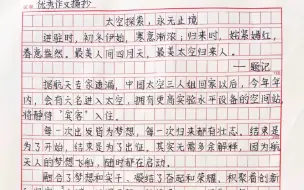 优秀作文摘抄
太空探索,永无止境
进驻时,初冬伊始,寒意渐浓;归来时,姹紫嫣红,
春意盎然。最美人间四月天,最美太空归来人。
——题记
据航天专家透漏,中国太空三人组回家以后,今年年
内,会有六名进入太空,拥有更高实验水平设备的空间站,
将静待“宾客”入住。
每一次出发皆为梦想,每一次归来都有壮志。结束是
为了开始,结束是为了出位。其实无需多余解释,因为航
天人的梦想飞船,随时都在启动。
融合了梦想和实干,凝结了奋起和荣耀,积聚着创新